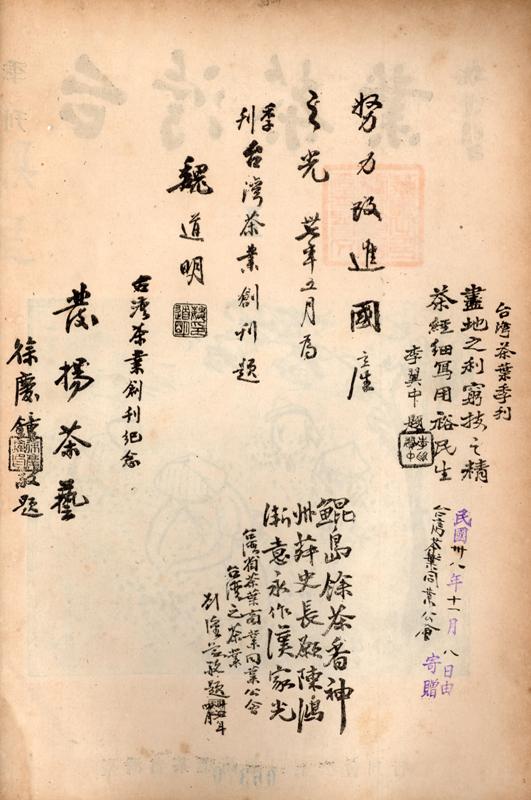 努力改進國產
之光 卅七年五月為
季刊台灣茶業創刊題
魏道明
台灣茶業季刊
盡地之利窮技之精
茶經細寫用裕民生
李翼中題
台灣茶業創刊紀念
發揚茶藝
徐慶鐘敬題
鯤島馀茶香神
州薪史長願陳鴻
漸意永作漢家光
台灣省茶葉商業同業公會
台灣之茶業
敬題
民國卅八年十一月八日由
台灣茶葉同業公會
寄贈